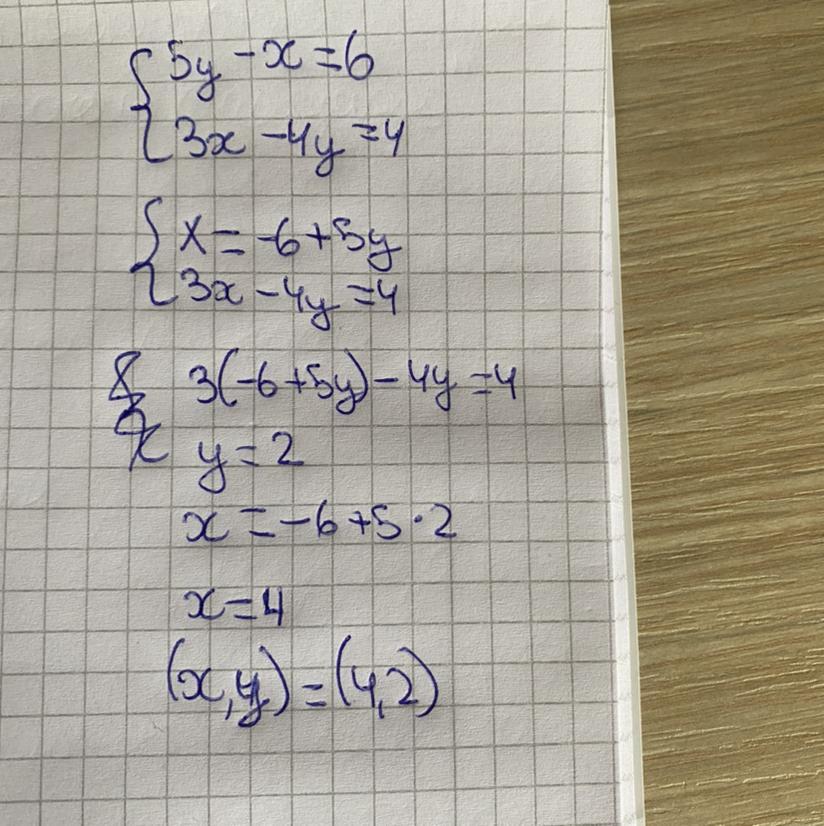 5y - x = 6
3x - 4y = 4
x = -6 + 5y
3x - 4y = 4
3(-6 + 5y) - 4y = 4
y = 2
x = -6 + 5 · 2
x = 4
(x, y) = (4, 2)